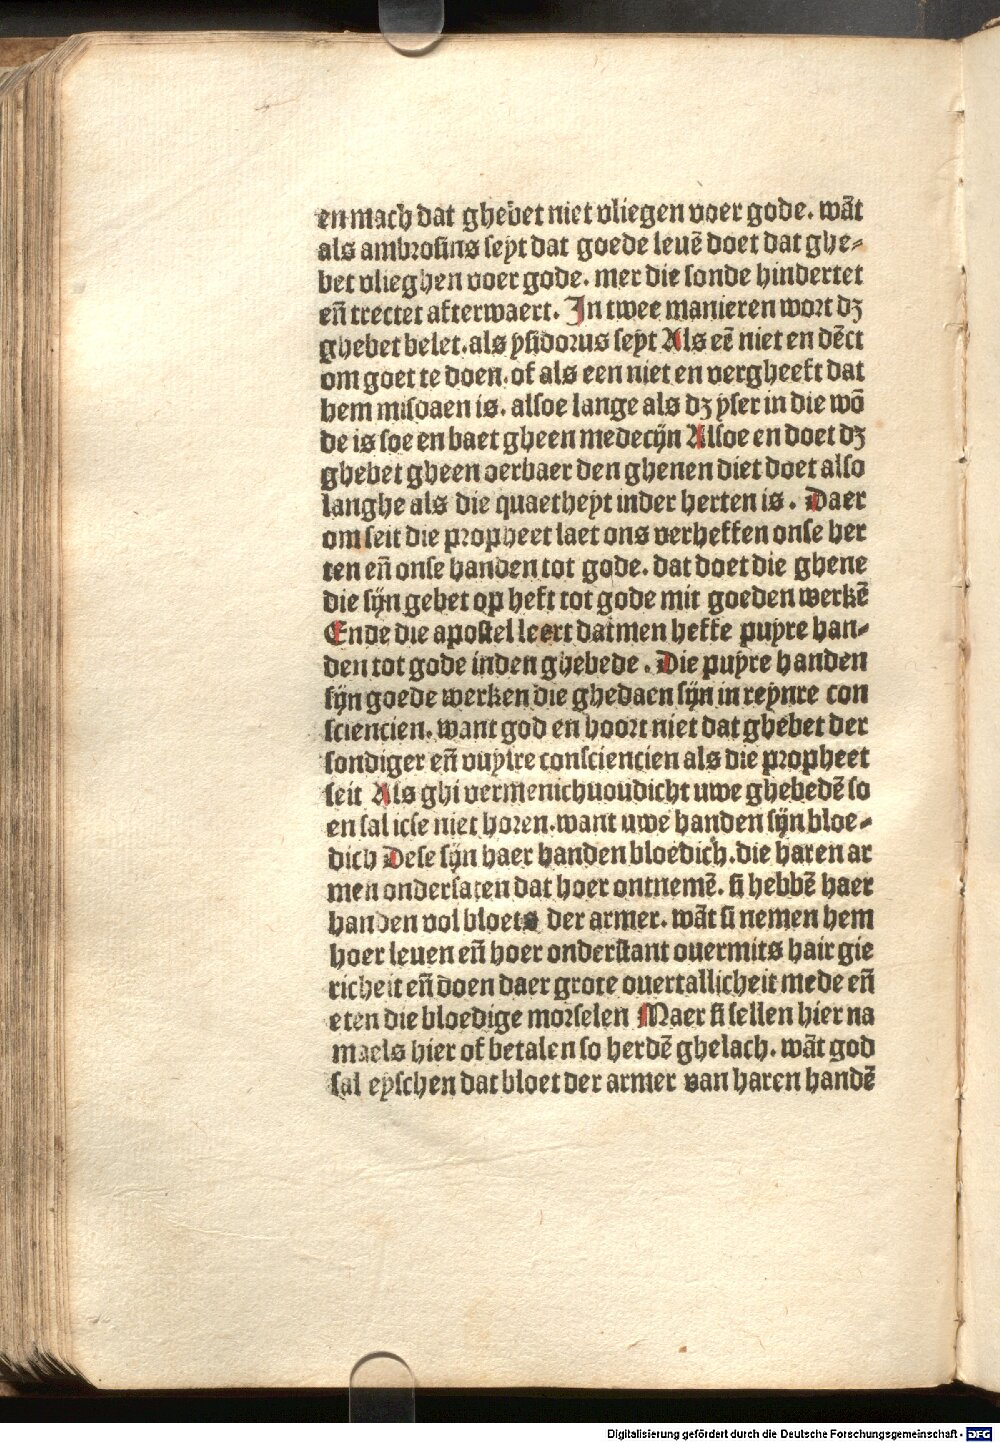 en mach dat ghebet niet vliegen voer gode. wãt
als ambrosius seyt dat goede leuẽ doet dat ghe⸗
bet vlieghen voer gode. mer die sonde hindertet
eñ trectet afterwaert. In twee manieren wort dʒ
ghebet belet. als ysidorus seyt Als eẽ niet en dẽct
om goet te doen. of als een niet en vergheeft dat
hem misdaen is. alsoe lange als dʒ yser in die wõ
de is soe en baet gheen medecijn Alsoe en doet dʒ
ghebet gheen oerbaer den ghenen diet doet also
langhe als die quaetheyt inder herten is. Daer
om seit die propheet laet ons verheffen onse her
ten eñ onse handen tot gode. dat doet die ghene
die sijn gebet op heft tot gode mit goeden werkẽ
Ende die apostel leert datmen heffe puyre han⸗
den tot gode inden ghebede. Die puyre handen
sijn goede werken die ghedaen sijn in reynre con
sciencien. want god en hoort niet dat ghebet der
sondiger eñ vuylre consciencien als die propheet
seit Als ghi vermenichuoudicht uwe ghebedẽ so
en sal icse niet horen. want uwe handen sijn bloe⸗
dich Dese sijn haer handen bloedich. die haren ar
men ondersaten dat hoer ontnemẽ. si hebbẽ haer
handen vol bloets der armer. wãt si nemen hem
hoer leuen eñ hoer onderstant ouermits hair gie
richeit eñ doen daer grote ouertallicheit mede eñ
eten die bloedige morselen Maer si sellen hier na
maels hier of betalen so herdẽ ghelach. wãt god
sal eyschen dat bloet der armer van haren handẽ
Digitalisierung gefördert durch die Deutsche Forschungsgemeinschaft - DFG